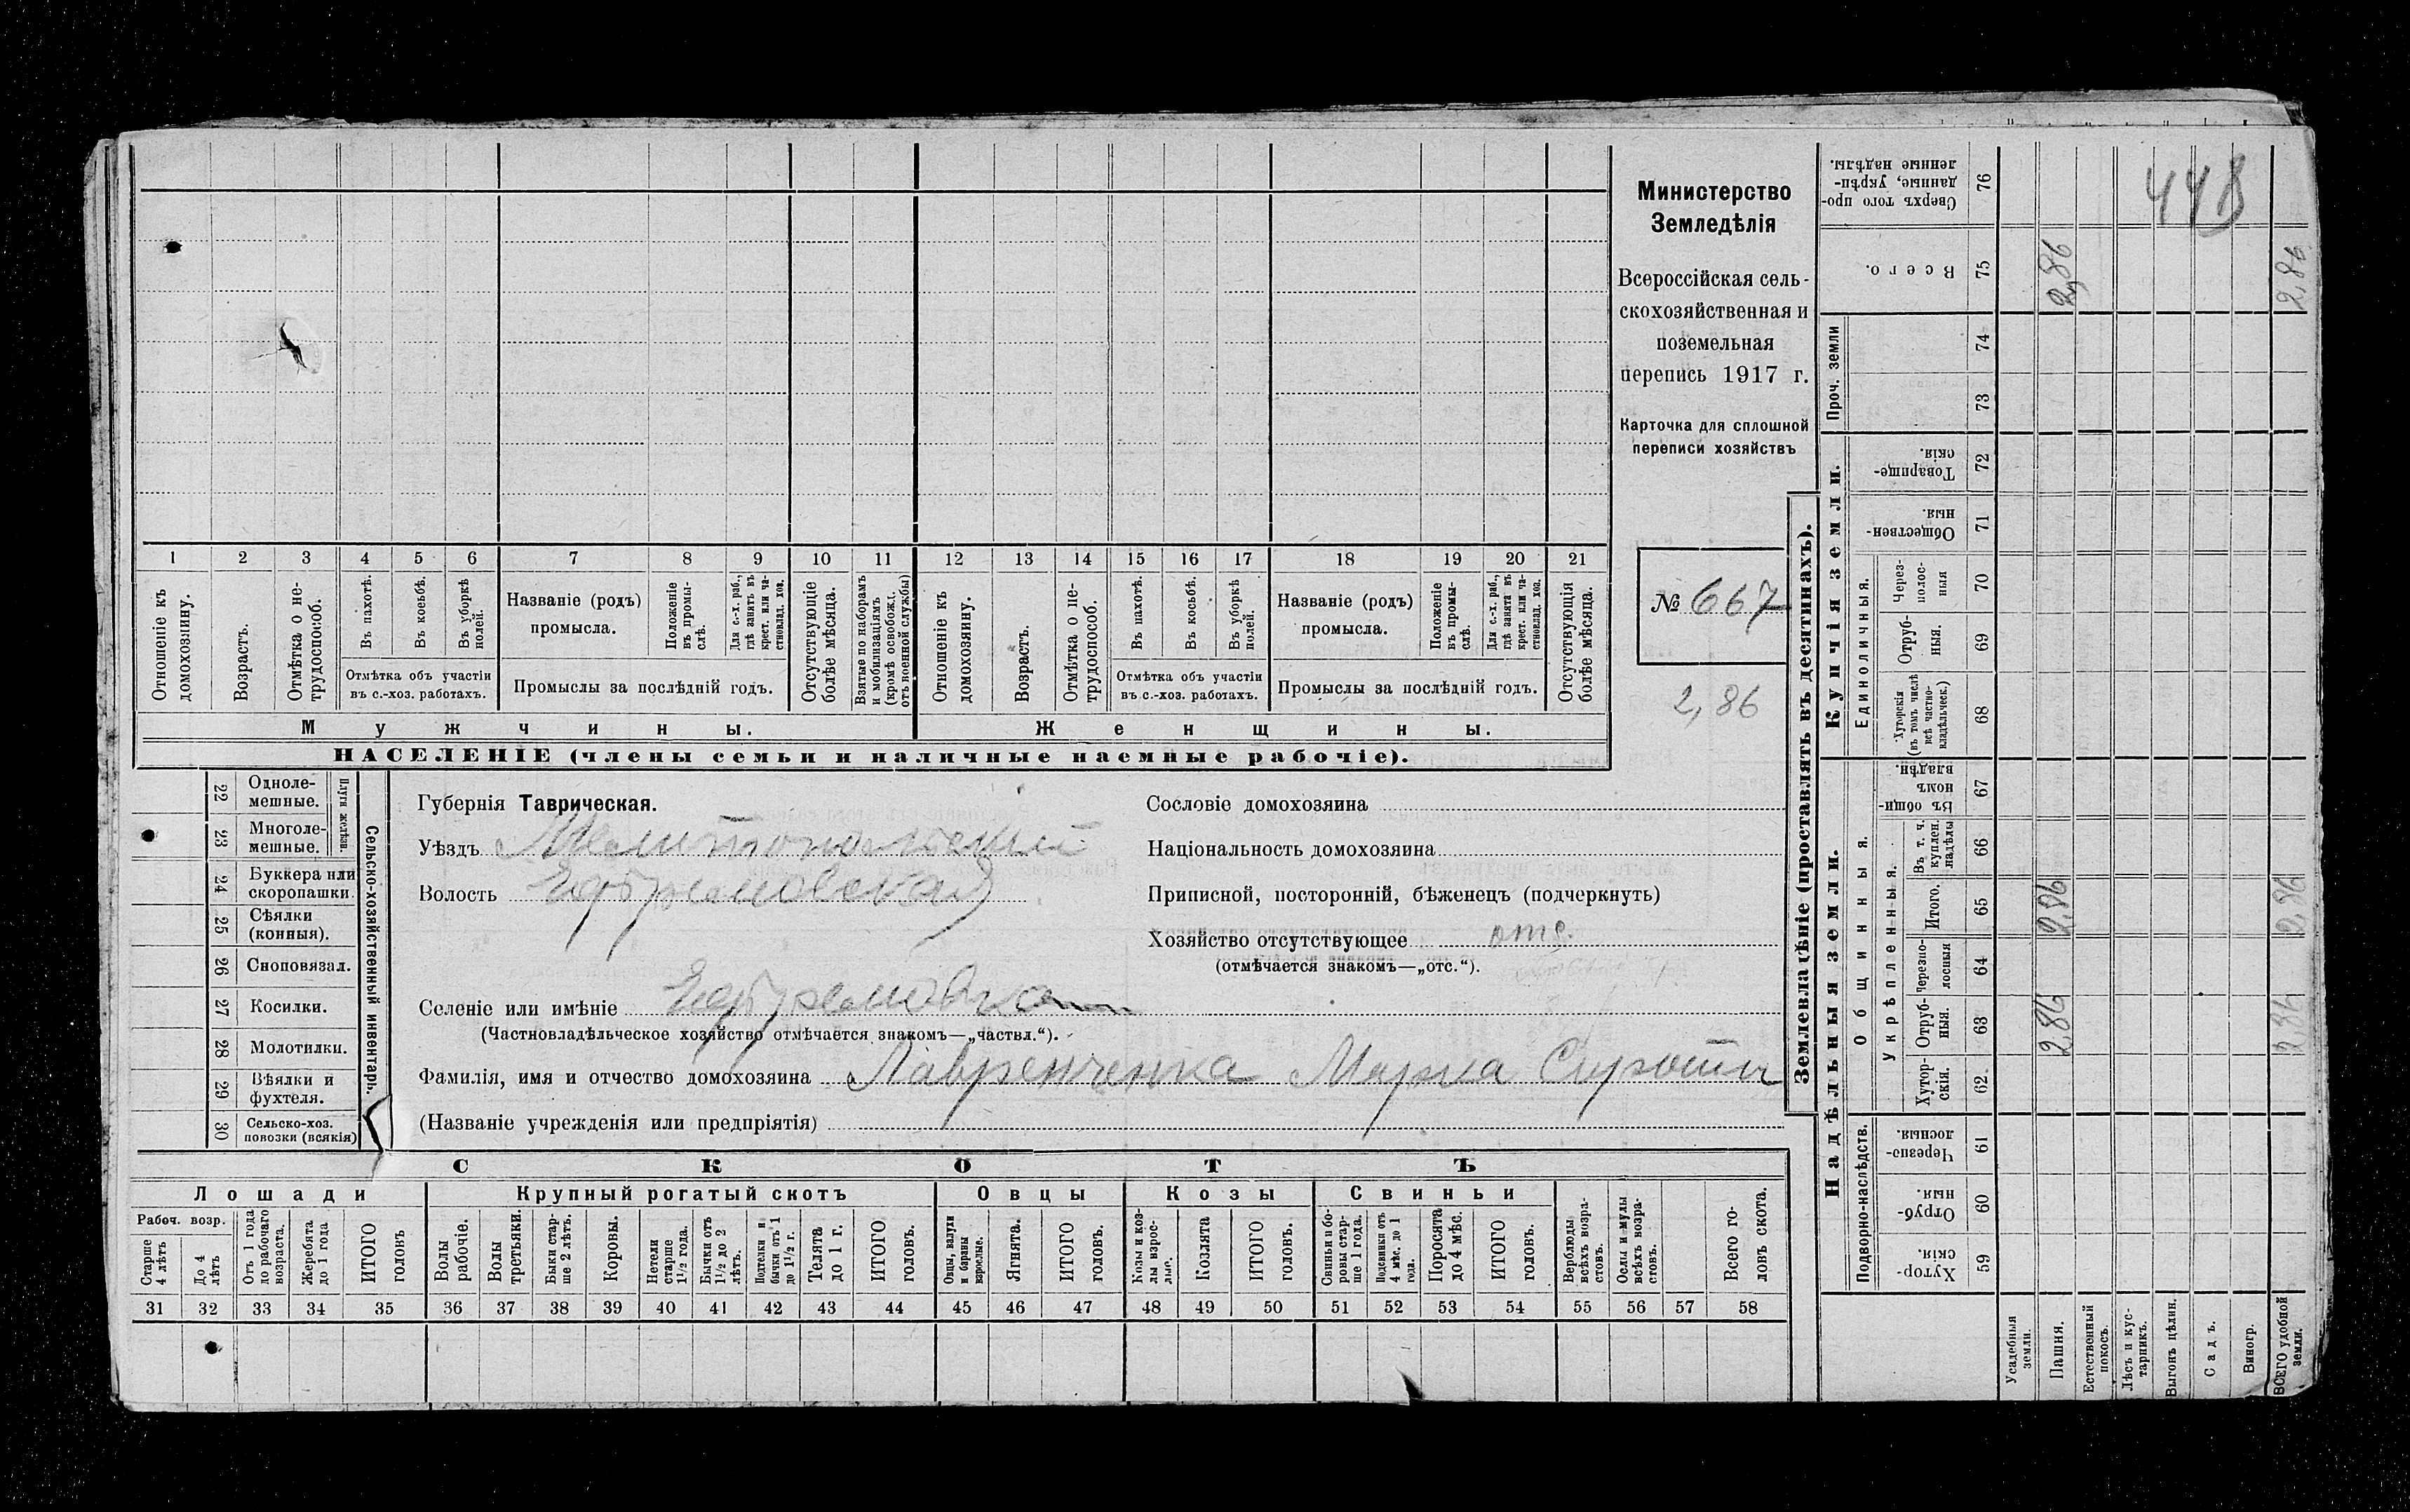 448
Министерство
Земледѣлія
Всероссійская сель-
скохозяйственная и
поземельная
перепись 1917 г.
Карточка для сплошной
переписи хозяйствъ
№ 667
2,86
1 2 3 4 5 6 7 8 9 10 11 12 13 14 15 16 17 18 19 20 21
Отношеніе къ домохозяину.
Возрастъ.
Отмѣтка о не-трудоспособ.
Въ пахотѣ.
Въ косьбѣ.
Въ уборкѣ полей.
Отмѣтка объ участіи
въ с.-хоз. работахъ.
Названіе (родъ)
промысла.
Положеніе въ промы-слѣ.
Для с.-х. раб., гдѣ занятъ въ крест. или ча-стновлад. хоз.
Промыслы за послѣдній годъ.
Отсутствующіе болѣе мѣсяца.
Взятые по наборамъ и мобилизаціямъ (кромѣ освобожд. отъ военной службы)
Отношеніе къ домохозяину.
Возрастъ.
Отмѣтка о не-трудоспособ.
Въ пахотѣ.
Въ косьбѣ.
Въ уборкѣ полей.
Отмѣтка объ участіи
въ с.-хоз. работахъ.
Названіе (родъ)
промысла.
Положеніе въ промы-слѣ.
Для с.-х. раб., гдѣ занята въ крест. или ча-стновлад. хоз.
Промыслы за послѣдній годъ.
Отсутствующія болѣе мѣсяца.
Мужчины.
Женщины.
НАСЕЛЕНІЕ (члены семьи и наличные наемные рабочіе).
22 Одноле-мешные.
23 Многоле-мешные.
Плуги желѣзн.
24 Буккера или скоропашки.
25 Сѣялки (конныя).
26 Сноповязал.
27 Косилки.
28 Молотилки.
29 Вѣялки и фухтеля.
30 Сельско-хоз. повозки (всякія)
Сельско-хозяйственный инвентарь.
Губернія Таврическая.
Уѣздъ Мелитопольскій
Волость Ефремовская
Селеніе или имѣніе Ефремовка
(Частновладѣльческое хозяйство отмѣчается знакомъ—„частвл.“).
Фамилія, имя и отчество домохозяина Лавренченка Марка Сироты
(Названіе учрежденія или предпріятія)
Сословіе домохозяина
Національность домохозяина
Приписной, посторонній, бѣженецъ (подчеркнуть)
Хозяйство отсутствующее отс.
(отмѣчается знакомъ—„отс.“).
СКОТЪ
Лошади
Крупный рогатый скотъ
Овцы
Козы
Свиньи
Рабоч. возр.
Старше 4 лѣтъ
До 4 лѣтъ
Отъ 1 года до рабочаго возраста.
Жеребята до 1 года
ИТОГО головъ
Волы рабочіе.
Волы третьяки.
Быки стар-ше 2 лѣтъ.
Коровы.
Нетели старше 1 1/2 года.
Бычки отъ 1 1/2 до 2 лѣтъ.
Подтелки и бычки отъ 1 до 1 1/2 г.
Телята до 1 г.
ИТОГО головъ.
Овцы, валухи и бараны взрослые.
Ягнята.
ИТОГО головъ.
Козы и коз-лы взрос-лые.
Козлята
ИТОГО головъ.
Свиньи и бо-ровы стар-ше 1 года.
Подсвинки отъ 4 мѣс. до 1 года.
Поросята до 4 мѣс.
ИТОГО головъ.
Верблюды всѣхъ возра-стовъ.
Ослы и мулы всѣхъ возра-стовъ.
Всего го-ловъ скота.
31 32 33 34 35 36 37 38 39 40 41 42 43 44 45 46 47 48 49 50 51 52 53 54 55 56 57 58
Землевладѣніе (проставлять въ десятинахъ).
Надѣльныя земли.
Купчія земли.
Проч. земли
Подворно-наслѣдств.
Общинныя.
Укрѣпленныя.
Единоличныя.
Сверхъ того про-данные, укрѣп-ленные надѣлы. 76
Всего. 75 2,86 2,86
74
73
Товарище-скія. 72
Обществен-ныя. 71
Через-полос-ныя 70
Отруб-ныя. 69
Хуторскія (въ томъ числѣ всѣ частно-владѣльческ.) 68
Въ общин-номъ владѣн. 67
Въ т. ч. куплен. надѣлы 66
Итого. 65 2,86 2,86
Черезпо-лосныя 64
Отруб-ныя. 63 2,86 2,86
Хутор-скія. 62
Черезпо-лосныя. 61
Отруб-ныя. 60
Хутор-скія. 59
Усадебныя земли.
Пашня.
Естественный покосъ.
Лѣсъ и кус-тарникъ.
Выгонъ цѣлин.
Садъ.
Виногр.
ВСЕГО удобной земли.